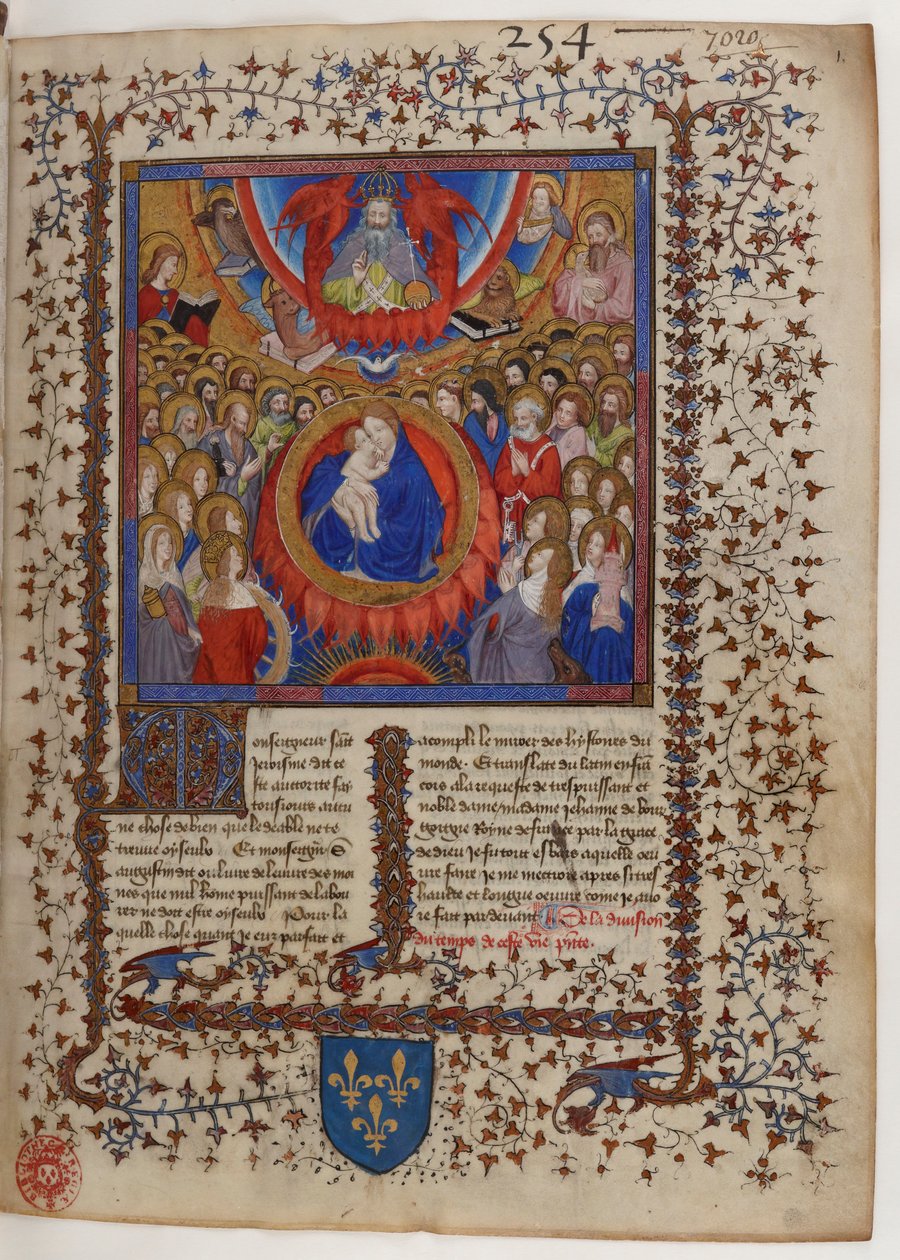 254 — 7020
1.
Monseigneur saīt
Jerosme dit ce
ste auctorite fay
tousiours aucu
ne chose de bien que le deable ne te
treuve oyseulx Et monseign̄r S
augustin dit ou livre de leuvre des moi
nes que nul hōme puissant de labou
rer ne doit estre oyseulx Pour la
quelle chose quant je eux parfait et
acompli le miroer des hystoires du
monde. Et translate du latin en frā
cois a la requeste de trespuissant et
noble dame madame jehanne de bour
goigne Royne de france par la grace
de dieu je fu tout esbahis a quelle oeu
vre faire je me mectroie apres si tres
haulte et longue oeuvre cōme je avo
ie fait par devant De la division
du temps de ceste vie pn̄te.